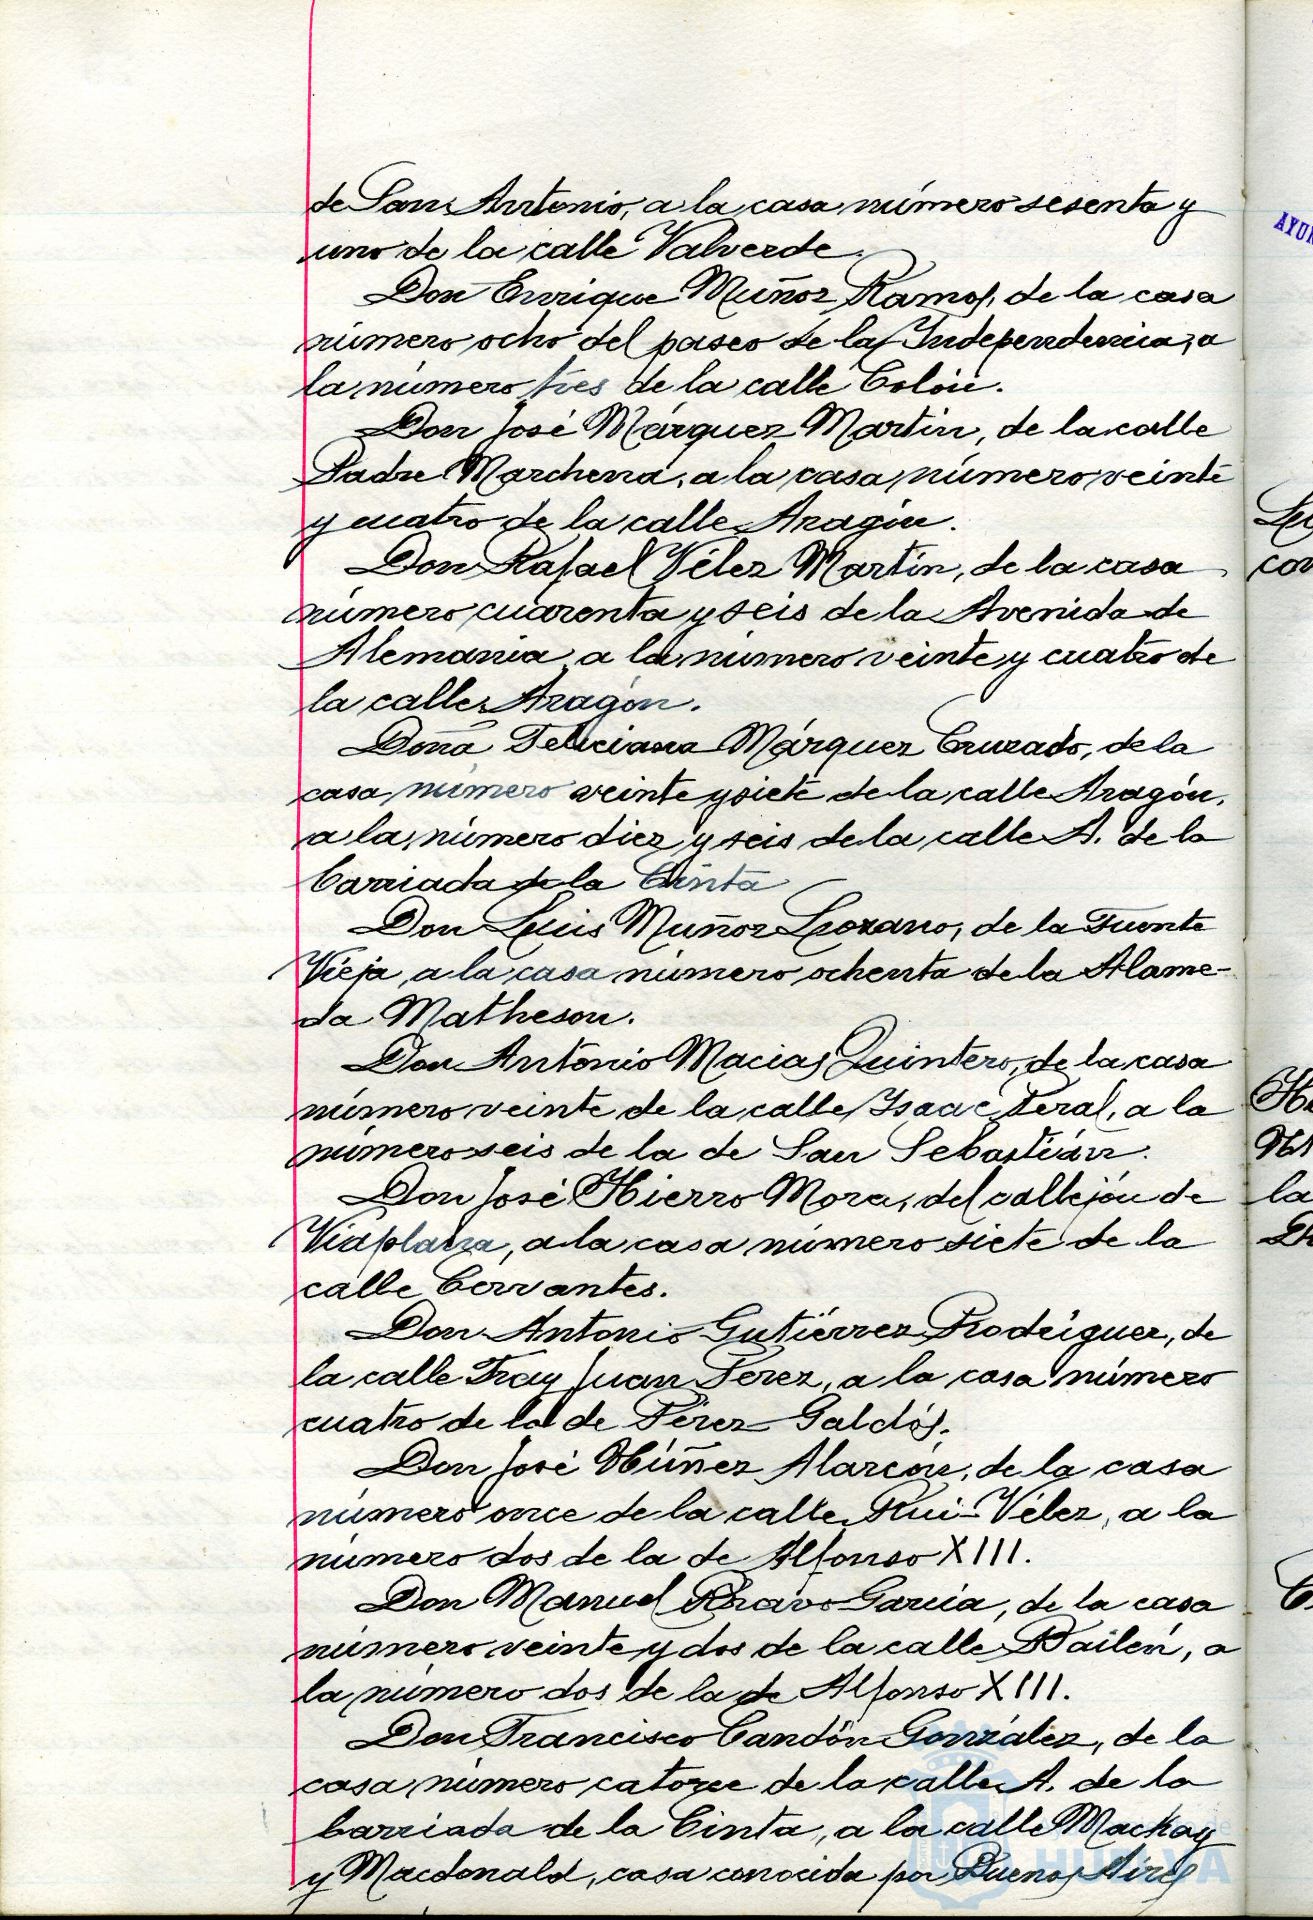 de San Antonio, a la casa número sesenta y
uno de la calle Valverde.
Don Enrique Muñoz Ramos, de la casa
número ocho del paseo de la Independencia, a
la número tres de la calle Colón.
Don José Márquez Martín, de la calle
Padre Marchena, a la casa número veinte
y cuatro de la calle Aragón.
Don Rafael Vélez Martín, de la casa
número cuarenta y seis de la Avenida de
Alemania a la número veinte y cuatro de
la calle Aragón.
Doña Feliciana Márquez Cruzado, de la
casa número veinte y siete de la calle Aragón,
a la número diez y seis de la calle A. de la
barriada de la Cinta
Don Luis Muñoz Lozano, de la Fuente
Vieja, a la casa número ochenta de la Alame-
da Matheson.
Don Antonio Macias Quintero, de la casa
número veinte de la calle Isaac Peral, a la
número seis de la de San Sebastián.
Don José Hierro Mora, del callejón de
Viaplana, a la casa número siete de la
calle Cervantes.
Don Antonio Gutiérrez Rodríguez, de
la calle Fray Juan Perez, a la casa número
cuatro de la de Pérez Galdós.
Don José Núñez Alarcón, de la casa
número once de la calle Rui-Vélez, a la
número dos de la de Alfonso XIII.
Don Manuel Bravo García, de la casa
número veinte y dos de la calle Bailén, a
la número dos de la de Alfonso XIII.
Don Francisco Candón González, de la
casa número catorce de la calle A. de la
barriada de la Cinta, a la calle Mackay
y Macdonald, casa conocida por Buenos Aires
HUELVA